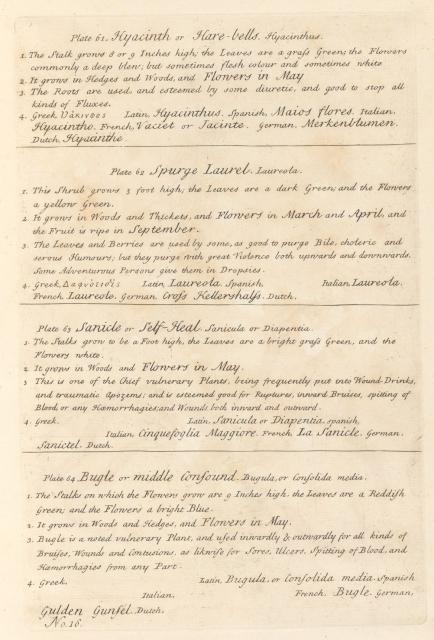 Plate 61. Hyacinth or Hare-bells. Hyacinthus.
1. The Stalk grows 8 or 9 Inches high; the Leaves are a grass Green; the Flowers
commonly a deep blew, but sometimes flesh colour and sometimes white
2. It grows in Hedges and Woods, and Flowers in May
3. The Roots are used, and esteemed by some diuretic, and good to stop all
kinds of Fluxes.
4. Greek, Latin, Hyacinthus. Spanish, Maios flores. Italian,
Hyacintho. French, Vaciet or Jacinte. German, Merkenblumen.
Dutch, Hyacinthe
Plate 62 Spurge Laurel. Laureola.
1. This Shrub grows 3 foot high; the Leaves are a dark Green; and the Flowers
a yellow Green.
2. It grows in Woods and Thickets, and Flowers in March and April, and
the Fruit is ripe in September.
3. The Leaves and Berries are used by some, as good to purge Bile, choleric and
serous Humours; but they purge with great Violence both upwards and downwards.
Some Adventurous Persons give them in Dropsies.
4. Greek, Δαφνοειδὶς Latin, Laureola. Spanish, Italian, Laureola.
French, Laureole. German, Cross Kellershalss. Dutch,
Plate 63 Sanicle or Self-Heal. Sanicula or Diapentia.
1. The Stalks grow to be a Foot high, the Leaves are a bright grass Green, and the
Flowers white.
2. It grows in Woods and Flowers in May.
3 This is one of the Chief vulnerary Plants, being frequently put into Wound-Drinks,
and traumatic Apozems; and is esteemed good for Ruptures, inward Bruises, spitting of
Blood, or any Hæmorrhagies; and Wounds both inward and outward.
4. Greek. Latin, Sanicula or Diapentia. spanish,
Italian, Cinquefoglia Maggiore. French, La Sanicle. German,
Sanictel. Dutch.
Plate 64 Bugle or middle Consound. Bugula, or Consolida media.
1. The Stalks on which the Flowers grow are 9 Inches high, the Leaves are a Reddish
Green; and the Flowers a bright Blue.
2. It grows in Woods and Hedges, and Flowers in May.
3. Bugle is a noted vulnerary Plant, and used inwardly & outwardly for all kinds of
Bruises, Wounds and Contusions, as likwise for Sores, Ulcers, Spitting of Blood, and
Hæmorrhagies from any Part.
4. Greek, Latin, Bugula, or Consolida media. Spanish
Italian, French, Bugle. German,
Gulden Gunsel. Dutch,
No. 16.